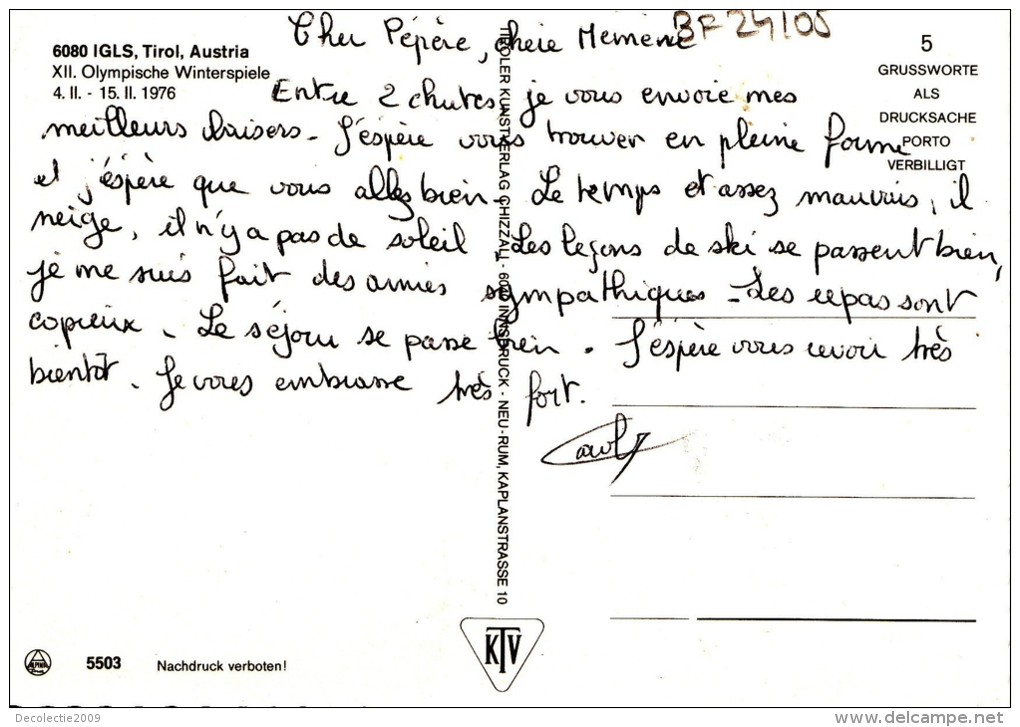 Cher Pépère, chère Mémère
BF 24105
6080 IGLS, Tirol, Austria
XII. Olympische Winterspiele
4. II. - 15. II. 1976
5
GRUSSWORTE
ALS
DRUCKSACHE
PORTO
VERBILLIGT
Entre 2 chutes, je vous envoie mes
meilleurs baisers - J'éspère vous trouver en pleine forme
et j'éspère que vous allez bien. Le temps et assez mauvais, il
neige, il n'y a pas de soleil. Les leçons de ski se passent bien,
je me suis fait des amies sympathiques - Les repas sont
copieux. Le séjour se passe bien. J'éspère vous revoir très
bientôt. Je vous embrasse très fort.
TIROLER KUNSTVERLAG CHIZZALI - 6040 INNSBRUCK - NEU-RUM, KAPLANSTRASSE 10
KTV
ALPINA
5503
Nachdruck verboten!
Decolectie2009
www.delcampe.net